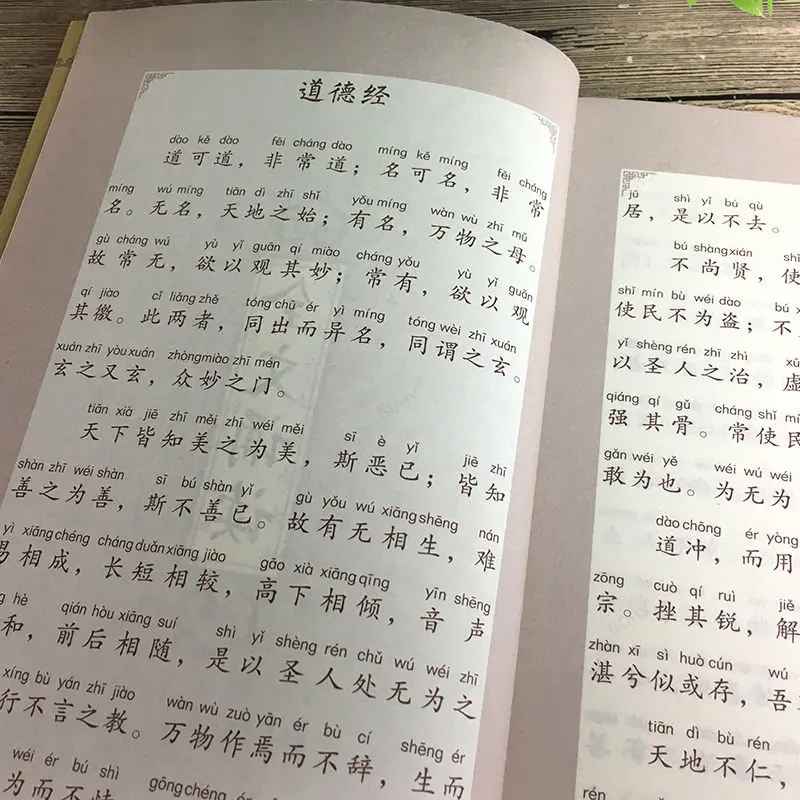 道德经
dào kě dào fēi cháng dào míng kě míng fēi cháng
道可道，非常道；名可名，非常
míng wú míng tiān dì zhī shǐ yǒu míng wàn wù zhī mǔ
名。无名，天地之始；有名，万物之母。
gù cháng wú yù yǐ guān qí miào cháng yǒu yù yǐ guān
故常无，欲以观其妙；常有，欲以观
qí jiào cǐ liǎng zhě tóng chū ér yì míng tóng wèi zhī xuán
其徼。此两者，同出而异名，同谓之玄。
xuán zhī yòu xuán zhòng miào zhī mén
玄之又玄，众妙之门。
tiān xià jiē zhī měi zhī wéi měi sī è yǐ jiē zhī
天下皆知美之为美，斯恶已；皆知
shàn zhī wéi shàn sī bú shàn yǐ gù yǒu wú xiāng shēng nán
善之为善，斯不善已。故有无相生，难
yì xiāng chéng cháng duǎn xiāng jiào gāo xià xiāng qīng yīn shēng
易相成，长短相较，高下相倾，音声
hè qián hòu xiāng suí shì yǐ shèng rén chǔ wú wéi zhī
和，前后相随，是以圣人处无为之
xíng bù yán zhī jiào wàn wù zuò yān ér bù cí shēng ér
行不言之教。万物作焉而不辞，生而
wéi ér bú shì gōng chéng ér
为而不恃
jū shì yǐ bú qù
居，是以不去。
bú shàng xián shǐ
不尚贤，使
shǐ mín bù wéi dào bú
使民不为盗；不
yǐ shèng rén zhī zhì xū
以圣人之治，虚
qiáng qí gǔ cháng shǐ mín
强其骨。常使民
gǎn wéi yě wéi wú wéi
敢为也。为无为
dào chōng ér yòng
道冲，而用
zōng cuò qí ruì jiě
宗。挫其锐，解
zhàn xī sì huò cún wú
湛兮似或存，吾
tiān dì bù rén
天地不仁，
rén